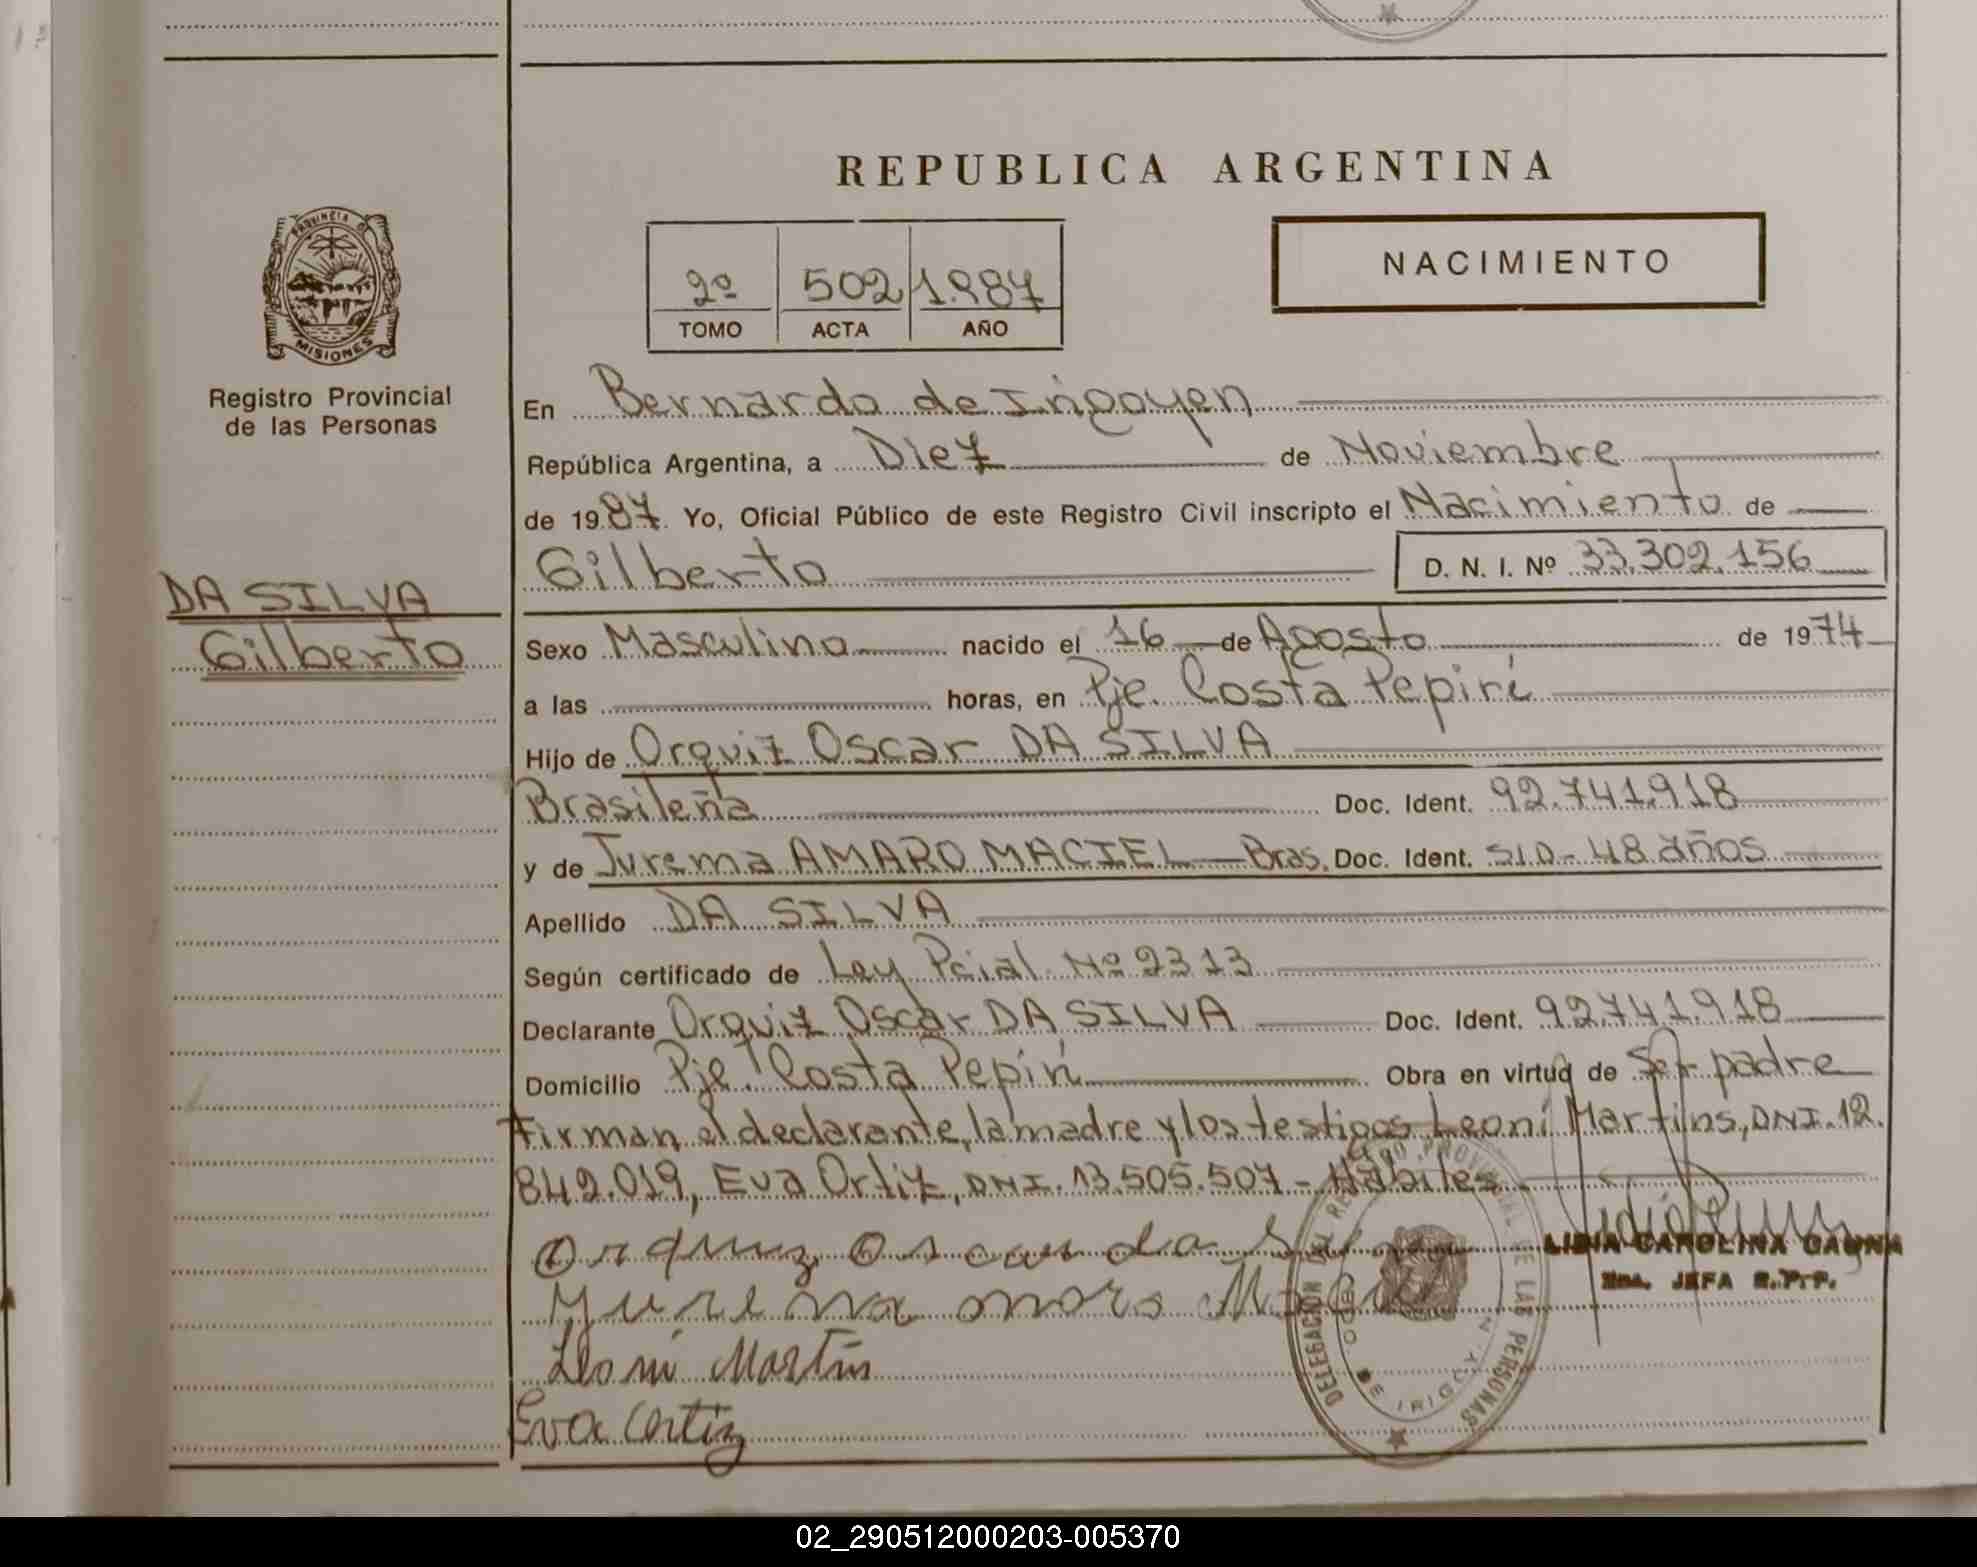 REPUBLICA ARGENTINA
PROVINCIA
MISIONES
Registro Provincial
de las Personas
2º 502 1.987
TOMO ACTA AÑO
NACIMIENTO
En Bernardo de Irigoyen
República Argentina, a Diez de Noviembre
de 1987. Yo, Oficial Público de este Registro Civil inscripto el Nacimiento de
Gilberto D. N. I. Nº 33.302.156
DA SILVA
Gilberto
Sexo Masculino nacido el 16 de Agosto de 1974
a las horas, en Pje. Costa Pepirí
Hijo de Orquiz Oscar DA SILVA
Brasileña Doc. Ident. 92.741.918
y de Jurema AMARO MACIEL Bras. Doc. Ident. S.I.D- 48 años
Apellido DA SILVA
Según certificado de Ley Pcial Nº 2313
Declarante Orquiz Oscar DA SILVA Doc. Ident. 92.741.918
Domicilio Pje. Costa Pepirí Obra en virtud de Ser padre
Firman el declarante, la madre y los testigos Leoni Martins, DNI. 12.
842.019, Eva Ortiz, DNI. 13.505.507 - Hábiles
Orquiz Oscar da
LIDIA CAROLINA GAUNA
JEFA R.P.P.
Jurema
Leoni Martins
Eva Ortiz
DELEGACION DEL REGISTRO PROVINCIAL DE LAS PERSONAS
DE IRIGOYEN
02_290512000203-005370